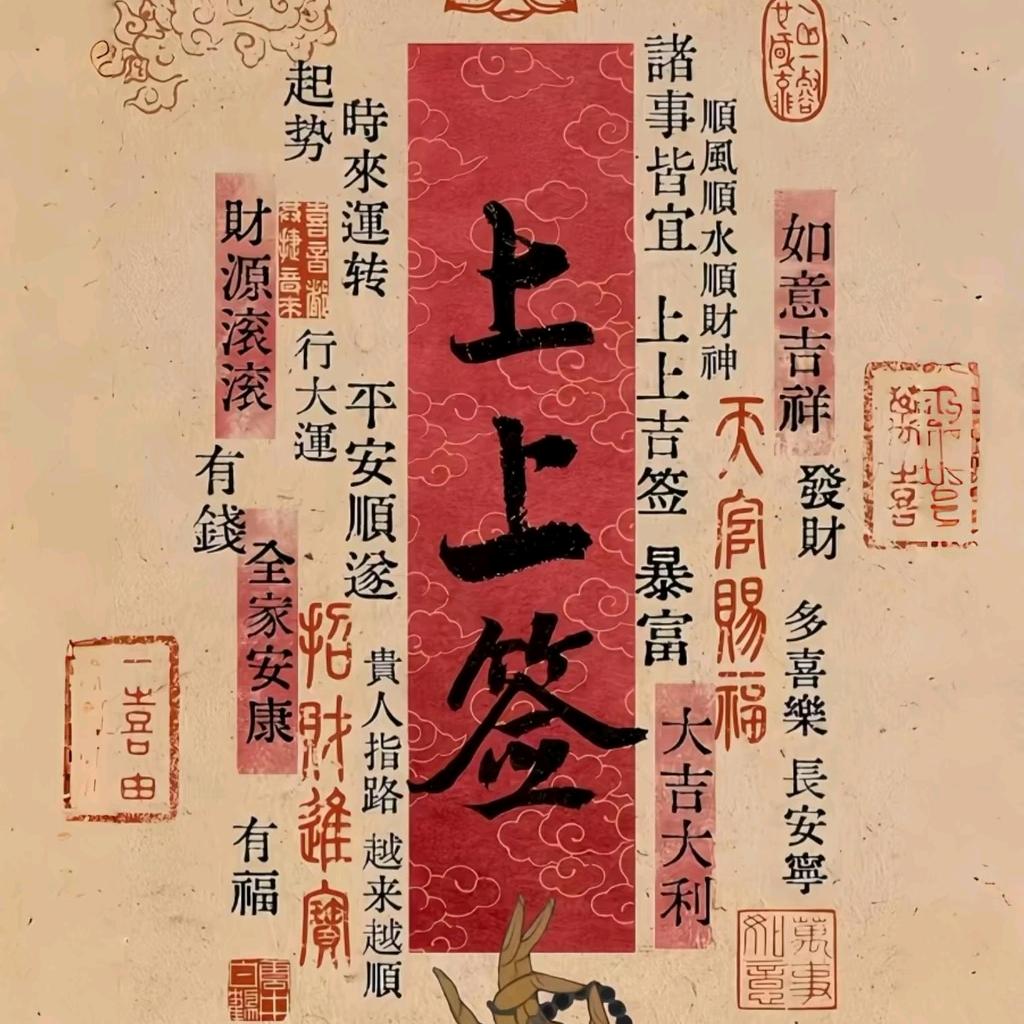 上上签
諸事皆宜
上上吉签
暴富
大吉大利
順風順水順財神
天官賜福
如意吉祥
發財
多喜樂
長安寧
萬事如意
時來運转
平安順遂
貴人指路
越来越順
起势
行大運
招財進寶
財源滚滚
有錢
全家安康
有福
一喜由